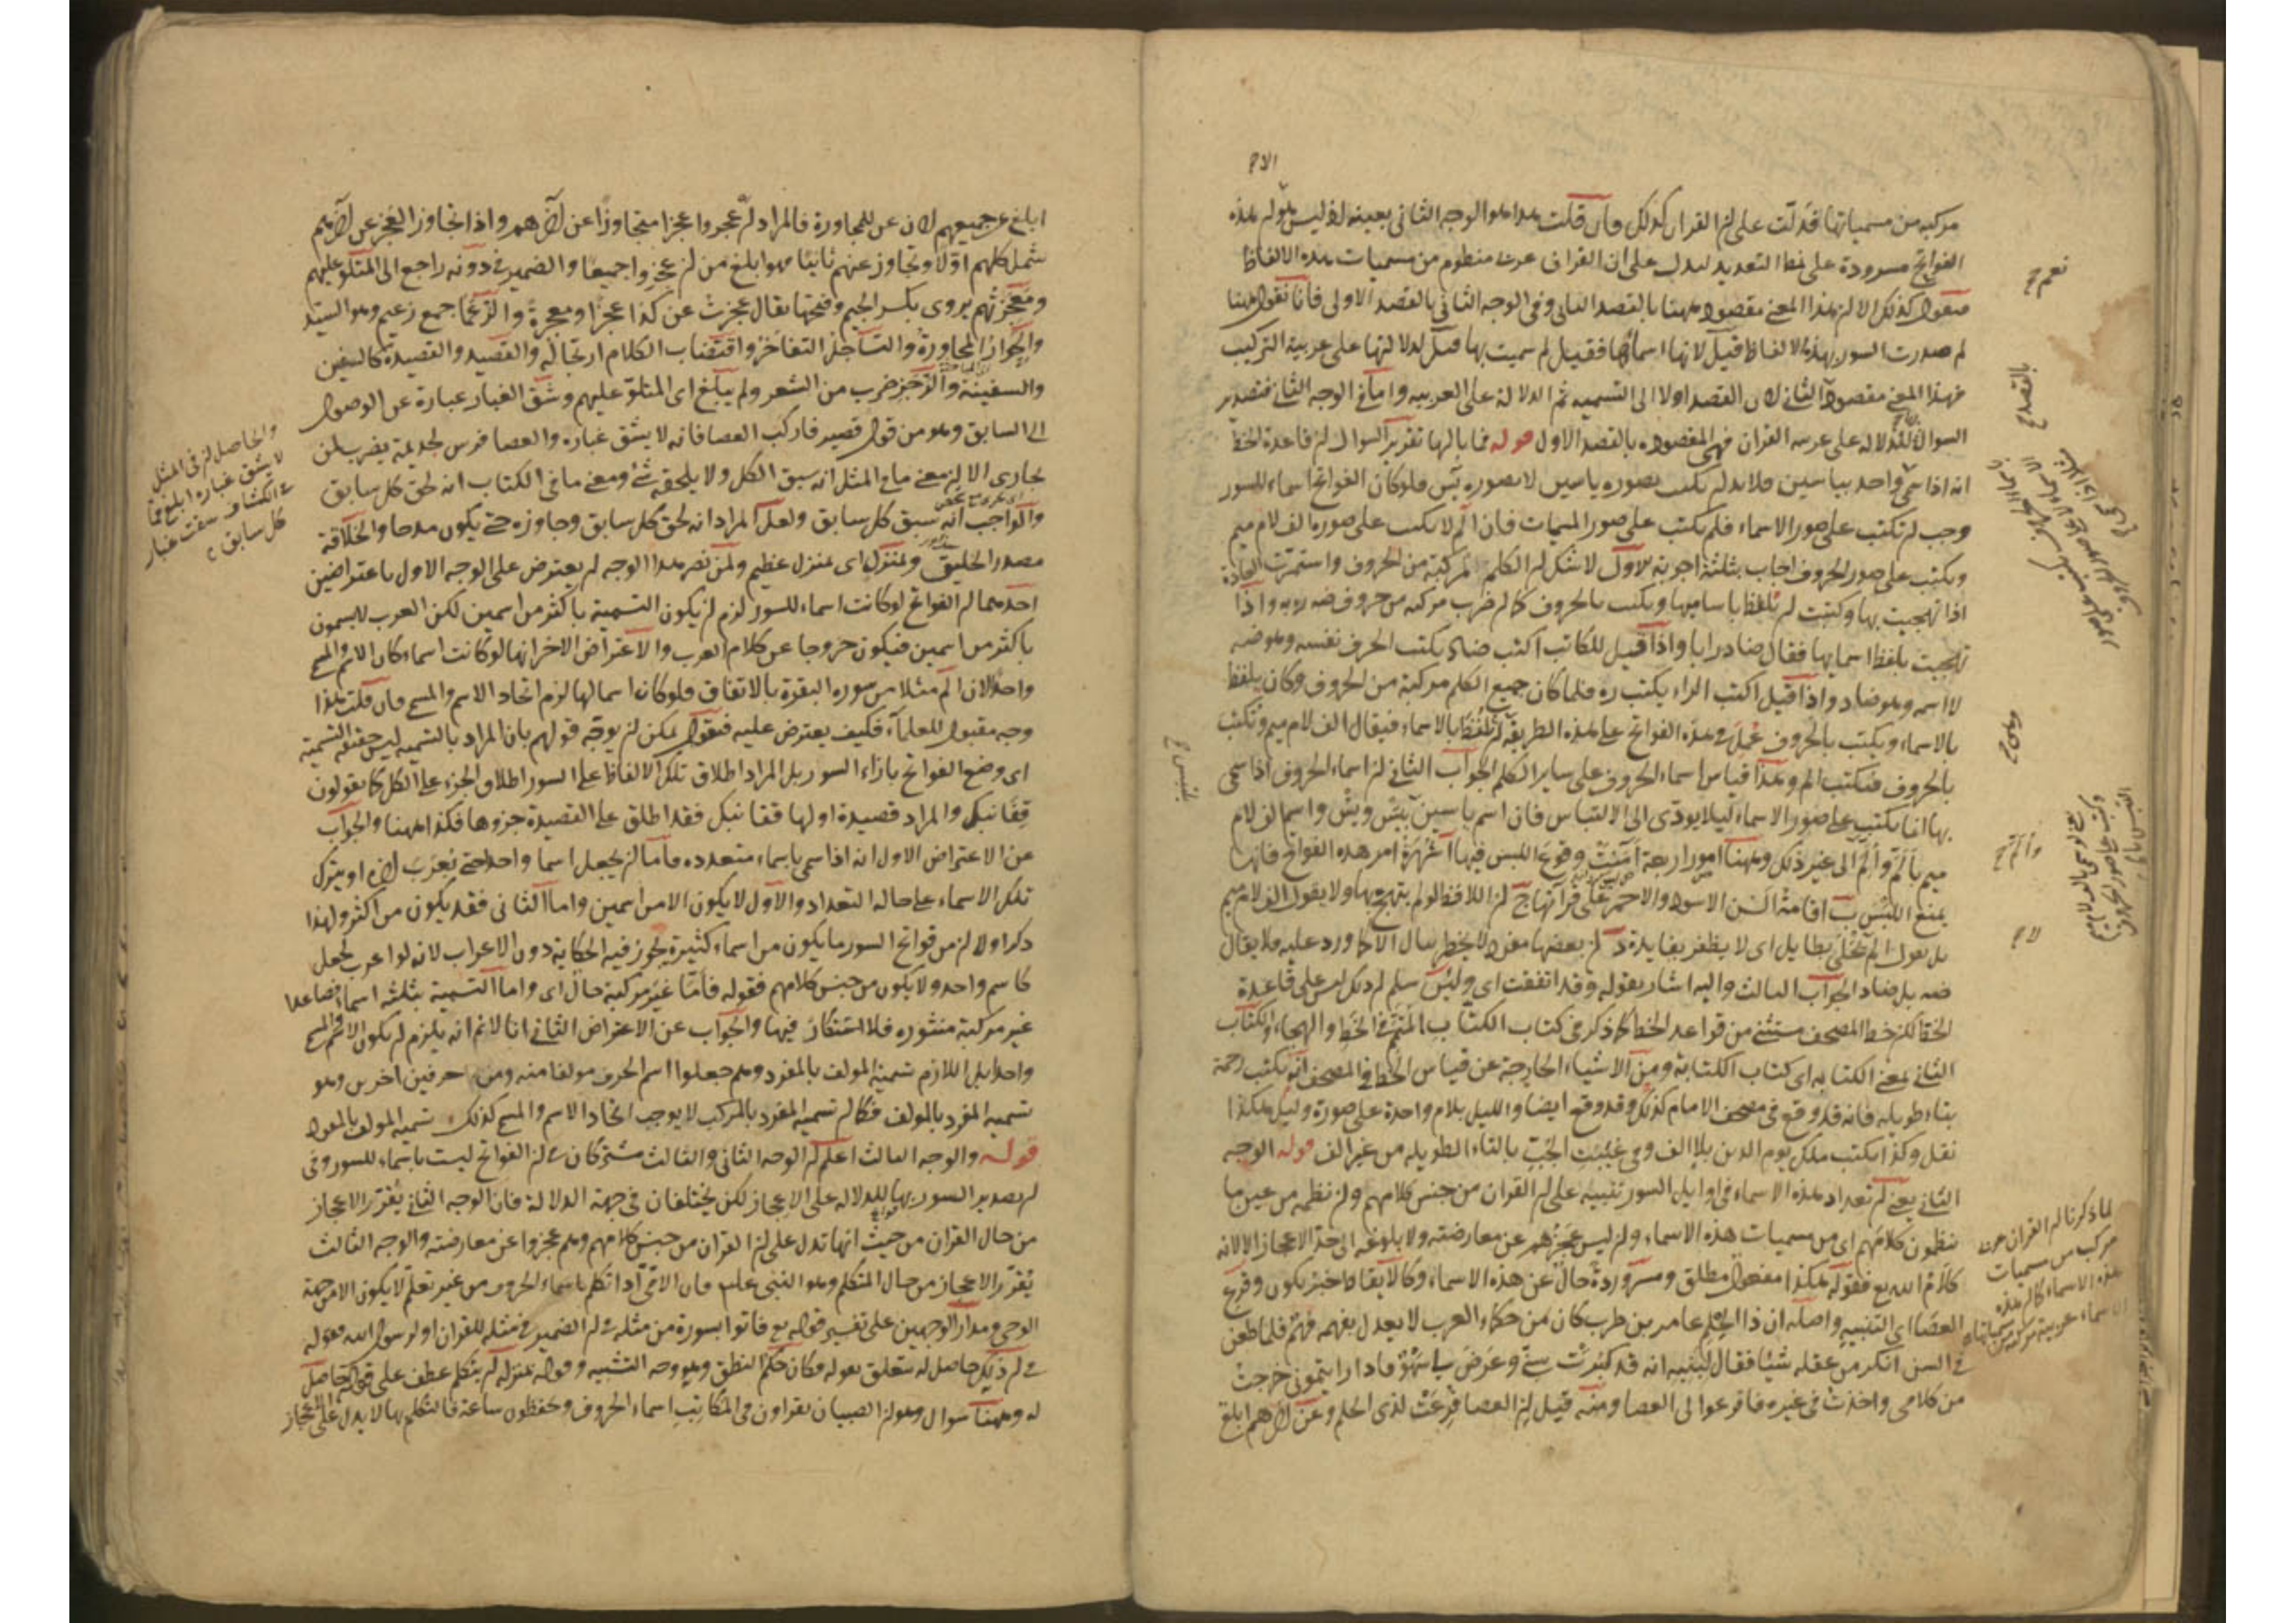 مركبه من مسمياتها فدلت على ان القران كذلك فان قلت هذا هو الوجه الثانى بعينه اذ ليس قولهم هذه
الفواتح مسرودة على نمط التعديد ليدل على ان القران عربى منظوم من مسميات هذه الالفاظ
فنقول كذلك الا ان هذا المعنى مقصود ههنا بالقصد الثانى وفى الوجه الثانى بالقصد الاولى فانا نقول ههنا
لم صدرت السور بهذه الالفاظ قيل لانها اسماؤها فقيل لم سميت بها قيل لدلالتها على عربية التركيب
فهذا المعنى مقصود الثانى لان القصد اولا الى التسميه ثم الدلالة على العربيه واما فى الوجه الثانى فتصدير
السور للدلاله على عربيه القران فهى المقصوده بالقصد الاول قوله فما بالها تقرير السوال ان قاعدة الخط
انه اذا سمى واحد بياسين فلابد ان يكتب بصوره ياسين لا بصوره يس فلو كان الفواتح اسماء للسور
وجب ان تكتب على صور الاسماء فلم يكتب على صور المسميات فان الم لا يكتب على صوره الف لام ميم
ويكتب على صور الحروف اجاب بثلثة اجوبة الاول لا شك ان الكلم المركبة من الحروف واستمرت العادة
اذا تهجيت بها وكتبت ان تلفظ باساميها ويكتب بالحروف كما ان ضرب مركبه من حروف ضه ره به واذا
تهجيت يلفظ اسمايها فقال ضاد را با واذا قيل للكاتب اكتب ضاد يكتب الحرف نفسه وهو ضه
لا اسمه وهو ضاد واذا قيل اكتب الراء يكتب ره فلما كان جميع الكلم مركبة من الحروف وكان يلفظ
بالاسماء ويكتب بالحروف عمل فى هذه الفواتح على هذه الطريقه ان تلفظ بالاسماء فيقال الف لام ميم وتكتب
بالحروف فيكتب الم وهذا قياس اسماء الحروف على ساير الكلم الجواب الثانى ان اسماء الحروف اذا سمى
بها انما يكتب على صور الاسماء ليلا يودى الى الالتباس فان اسم ياسين بيس ويش واسم الف لام
ميم بالم والم الى غير ذلك وههنا امور اربعة امنت وقوع اللبس فيها ا شهرة امر هذه الفواتح فانها
يمنع اللبس ب اقامة السن الاسود والاحمر على قرآتها ج ان اللافظ لو لم يتهج بها ولا يقول الف لام ميم
بل يقول الم لم يحل بطايل اى لا يظفر بفايدة د ان بعضها مفرد لا يخطر ببال الا ما ورد عليه فلا يقال
ضه بل ضاد الجواب الثالث واليه اشار بقوله وقد اتفقت اى ولئن سلم ان ذلك ليس على قاعدة
الخط لكن خط المصحف مستثنى من قواعد الخط كما ذكر فى كتاب الكتاب المتمم فى الخط والهجاء والكتاب
الثانى بمعنى الكتابه اى كتاب الكتابة ومن الاشياء الخارجة عن قياس الخط فى المصحف انه يكتب رحمة
بتاء طويله فانه قد وقع فى مصحف الامام كذلك وقد وقع ايضا والليل بلام واحدة على صورة وليل هكذا
نقل وكذا يكتب ملك يوم الدين بلا الف وفى غيبت الجب بالتاء الطويله من غير الف قوله الوجه
الثانى يعنى ان تعداد هذه الاسماء فى اوايل السور تنبيه على ان القران من جنس كلامهم وان نظمه من عين ما
ينظمون كلامهم اى من مسميات هذه الاسماء وان ليس عجزهم عن معارضته ولا بلوغه الى حد الاعجاز الا لانه
كلام الله تع فقوله هكذا مفعول مطلق ومسرودة حال عن هذه الاسماء وكالايقاظ خبر يكون وقرع
العصا اى التنبيه واصله ان ذا الحلم عامر بن ظرب كان من حكماء العرب لا يعدل بفهمه فهم فلما طعن
فى السن انكر من عقله شيئا فقال لبنيه انه قد كبرت سنى وعرض لى سهو فاذا رايتمونى خرجت
من كلامى واخذت فى غيره فاقرعوا لى العصا ومنه قيل ان العصا قرعت لذى الحلم وعن اخرهم ابلغ
نعم ح
بالقصد ح
لا ح
لما ذكرنا ان القران عربى
مركب من مسميات
هذه الاسماء كما ان هذه
الاسماء عربية مركبة من مسمياتها
ابلغ من جميعهم لان عن للمجاورة فالمراد انهم عجزوا عجزا متجاوزا عن اخرهم واذا تجاوز العجز عن اخرهم
شمل كلهم اولا وتجاوز عنهم ثانيا فهو ابلغ من ان عجزوا جميعا والضمير فى دونه راجع الى المتلو عليهم
ومعجزتهم يروى بكسر الجيم وفتحها يقال عجزت عن كذا عجزا ومعجزة والزعما جمع زعيم وهو السيد
والحوار المحاورة والتساجل التفاخر واقتضاب الكلام ارتجاله والقصيد والقصيدة كالسفين
والسفينة والرجز ضرب من الشعر ولم يبلغ اى المتلو عليهم وشق الغبار عبارة عن الوصول
الى السابق وهو من قول قصير فاركب العصا فانه لا يشق غباره والعصا فرس لجذيمة يضرب لمن
يجارى الا ان معنى ما فى المثل انه سبق الكل ولا يلحقه شئ ومعنى ما فى الكتاب انه لحق كل سابق
والواجب انه سبق كل سابق ولعل المراد انه لحق كل سابق وجاوزه حتى يكون مدحا والخلاقة
مصدر الخليق وبمنزل اى بمنزل عظيم ولمن نصر هذا الوجه ان يعترض على الوجه الاول باعتراضين
احدهما ان الفواتح لو كانت اسماء للسور لزم ان يكون التسمية باكثر من اسمين لكن العرب لا يسمون
باكثر من اسمين فيكون خروجا عن كلام العرب والاعتراض الاخر انها لو كانت اسماء كان الاسم والمسمى
واحدا لان الم مثلا من سوره البقرة بالاتفاق فلو كان اسما لها لزم اتحاد الاسم والمسمى فان قلت هذا
وجه مقبول للعلماء فكيف يعترض عليه فنقول يمكن ان يوجه قولهم بان المراد بالتسميه ليس حقيقه التسمية
اى وضع الفواتح بازاء السور بل المراد اطلاق تلك الالفاظ على السور اطلاق الجزء على الكل كما يقولون
قفا نبك والمراد قصيدة اولها قفا نبك فقد اطلق على القصيدة جزءها فكذا ههنا والجواب
عن الاعتراض الاول انه اذا سمى باسماء متعدده فاما ان يجعل اسما واحدا حتى يعرب اخره او يترك
تلك الاسماء على حاله التعداد والاول لا يكون الا من اسمين واما الثانى فقد يكون من اكثر ولهذا
ذكر اولا ان من فواتح السور ما يكون من اسماء كثيرة يجوز فيه الحكاية دون الاعراب لانه لو اعرب لجعل
كاسم واحد ولا يكون من جنس كلامهم فقوله فاما غير مركبة حال اى واما التسمية بثلثه اسماء فصاعدا
غير مركبة منثوره فلا استنكار فيها والجواب عن الاعتراض الثانى انا لانم انه يلزم ان يكون الاسم والمسمى
واحدا بل اللازم تسمية المولف بالمفرد وهم جعلوا اسم الحرف مولفا منه ومن حرفين اخرين وهو
تسميه المفرد بالمولف فكما ان تسميه المفرد بالمركب لا يوجب اتحاد الاسم والمسمى كذلك تسميه المولف بالمفرد
قوله والوجه الثالث اعلم ان الوجه الثانى والثالث مشتركان فى ان الفواتح ليست باسماء للسور وفى
ان تصدير السور بها للدلاله على الاعجاز لكن يختلفان فى جهة الدلالة فان الوجه الثانى يقرر الاعجاز
من حال القران من حيث انها تدل على ان القران من جنس كلامهم وهم عجزوا عن معارضته والوجه الثالث
يقرر الاعجاز من حال المتكلم وهو النبى علم فان الامى اذا تكلم باسماء الحروف من غير تعلم لا يكون الا من جهة
الوحى ومدار الوجهين على تفسير قوله تع فاتوا بسورة من مثله فى ان الضمير فى مثله للقران او لرسول الله فقوله
فى ان ذلك حاصل له متعلق بقوله فكان حكم النطق وهو وجه التشبيه وقوله بمنزله ان يتكلم عطف على قوله حاصل
له وههنا سوال وهو ان الصبيان يقراون فى المكاتب اسماء الحروف وحفظوه ساعة فالتكلم بها لا يدل على الاعجاز
والحاصل ان فى المثل
لا يشق غباره ابلغ مما
فى الكشاف شقت غبار
كل سابق